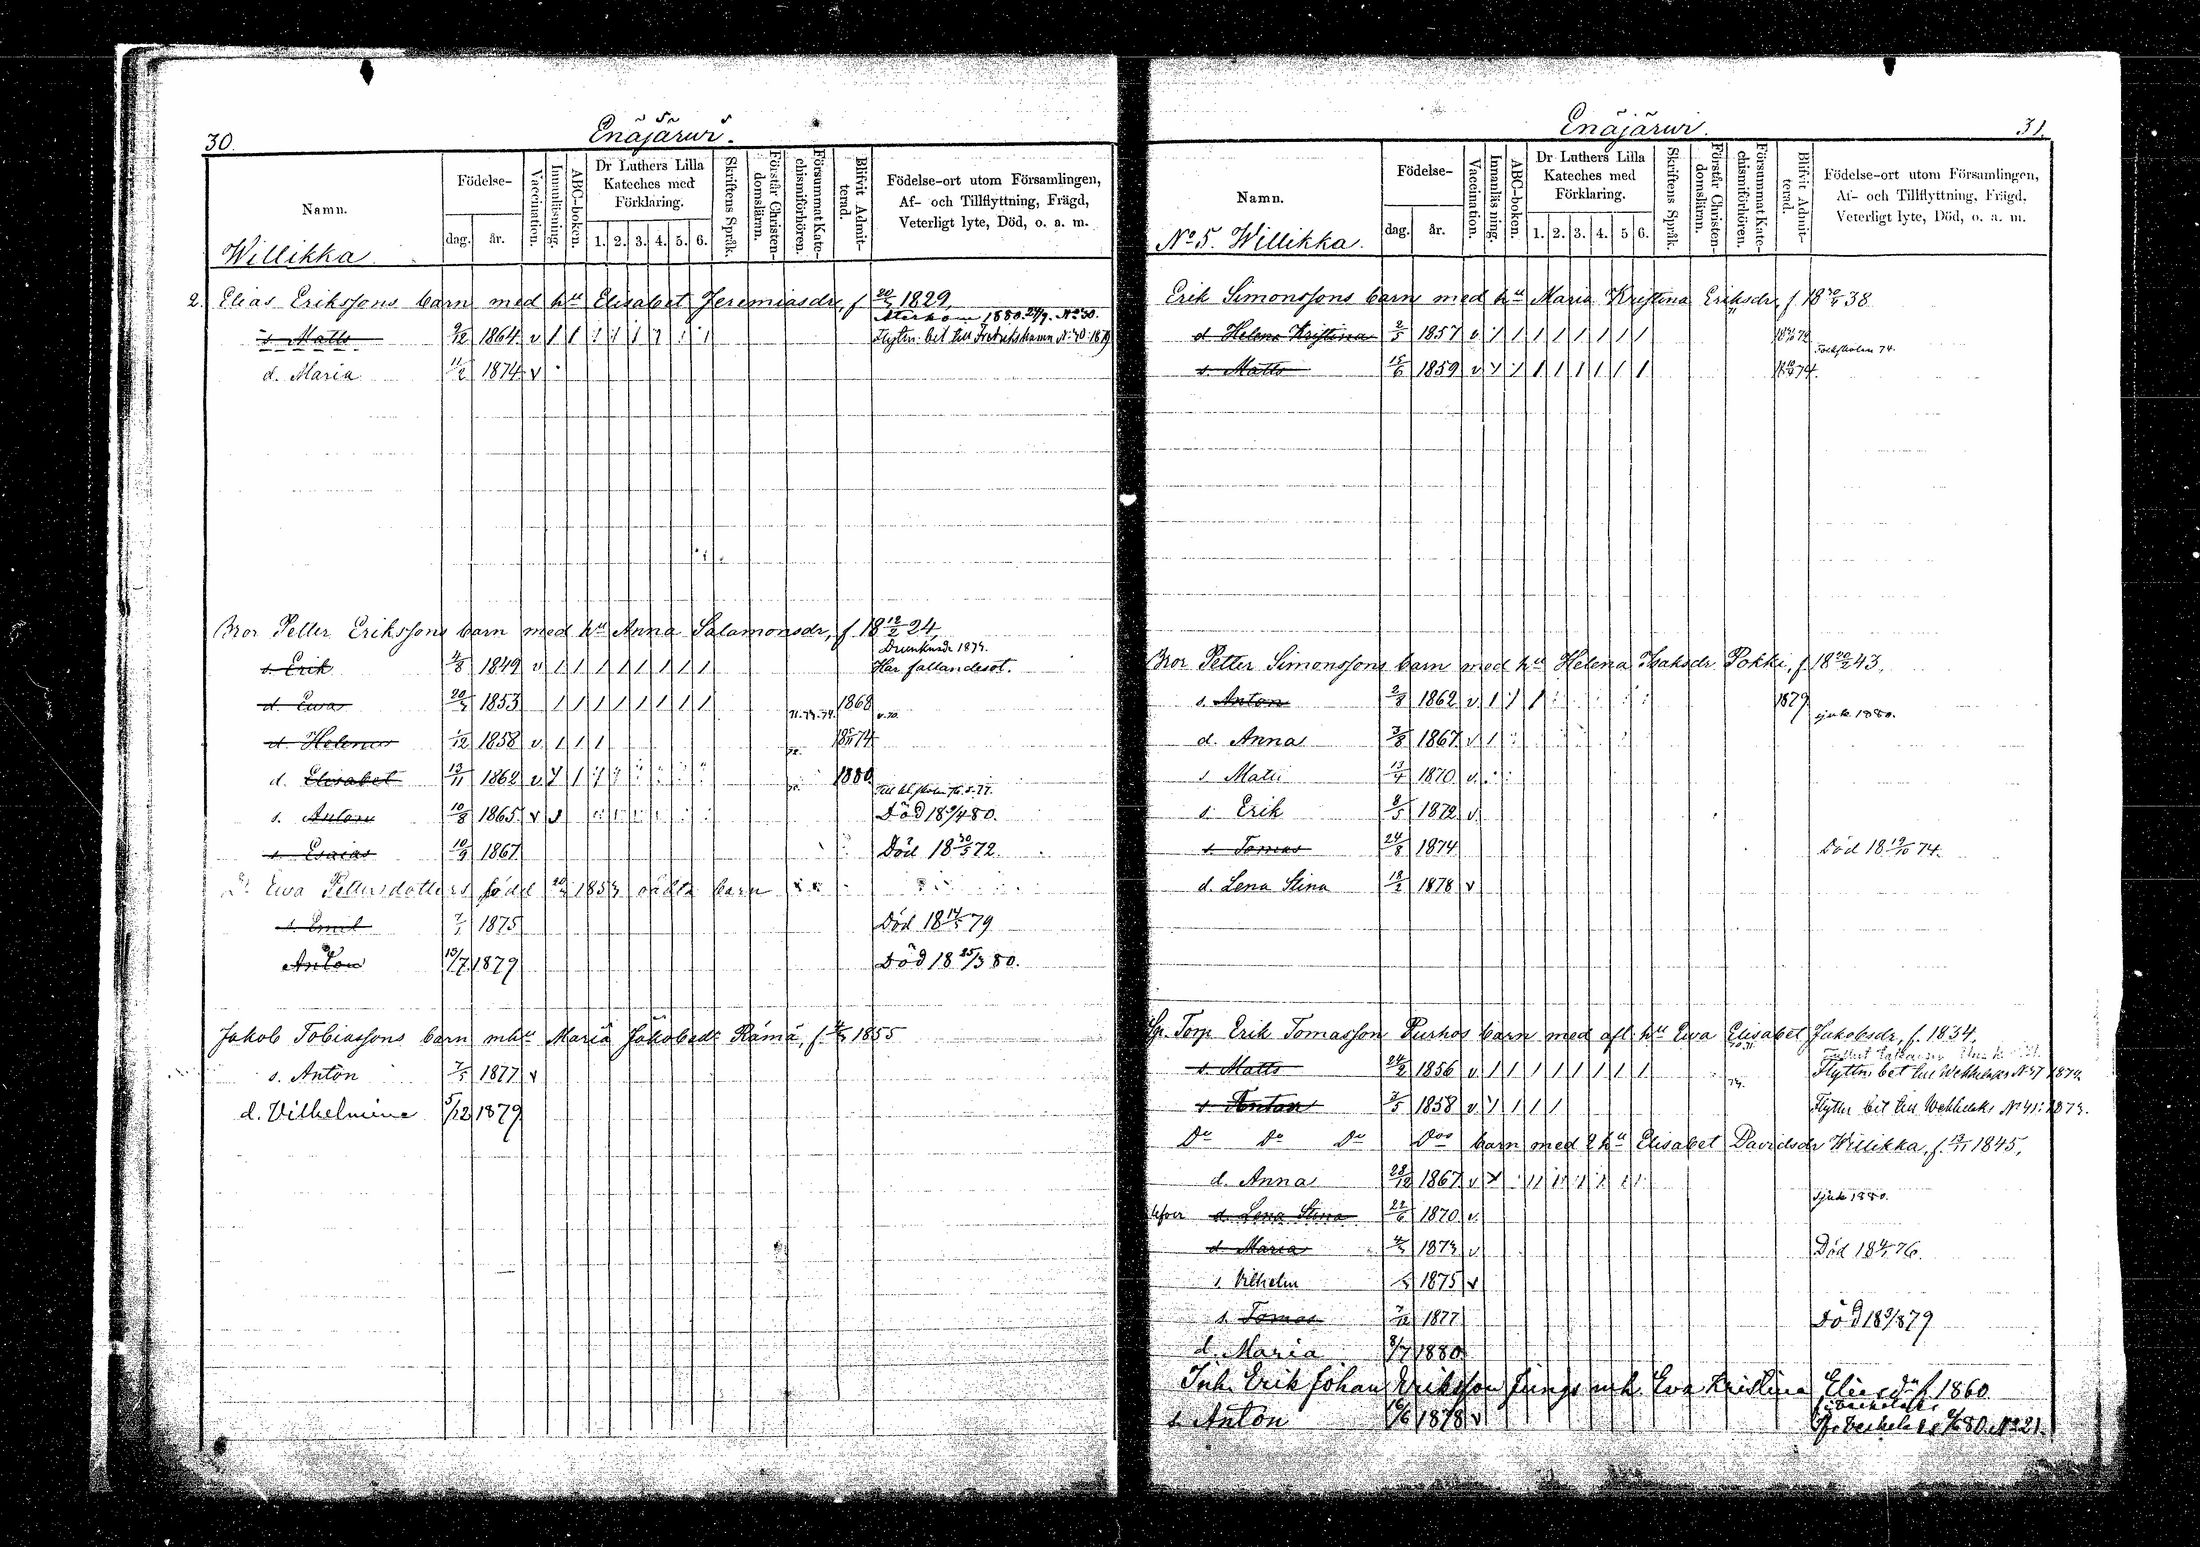 30.
Enäjärwi.
Namn.
Födelse-
dag.
år.
Vaccination.
Innanläsning.
ABC-boken.
Dr Luthers Lilla
Kateches med
Förklaring.
1. 2. 3. 4. 5. 6.
Skriftens Språk.
Förstår Christen-
domsläran.
Försummat Kate-
chismiförhören.
Blifvit Admit-
terad.
Födelse-ort utom Församlingen,
Af- och Tillflyttning, Frägd,
Veterligt lyte, Död, o. a. m.
Willikka
2. Elias Erikssons barn med hu Elisabet Jeremiasdr, f 1829.
Återkom 1880 No 30.
s. Matts 9/12 1864 v Flyttn. bet till Fredrikshamn No 40. 1879
d. Maria 11/2 1874 v
Bror Petter Erikssons barn med hu Anna Salamonsdr, f. 18 12/2 24.
s. Erik 4/8 1849 v Har fallandesot.
d. Ewa 1853 71. 73. 74. 1868
d. Helena 1/12 1858 v 74
d. Elisabet 13/11 1862 v 1880
s. Anton 10/8 1865 v Död 18 80.
s. Esaias 10/9 1867 Död 18 30/5 72.
D. Ewa Pettersdotters född 1853 oäkta barn
s. Emil 1875 Död 18 79
Anton 13/7 1879 Död 18 25/3 80.
Jakob Tobiassons barn m hu Maria Jakobsdr Rämä, f. 1855
s. Anton 1877 v
d. Vilhelmine 5/12 1879
Enäjärwi.
31.
Namn.
Födelse-
dag.
år.
Vaccination.
Innanläsning.
ABC-boken.
Dr Luthers Lilla
Kateches med
Förklaring.
1. 2. 3. 4. 5 6.
Skriftens Språk.
Förstår Christen-
domsläran.
Försummat Kate-
chismiförhören.
Blifvit Admit-
terad.
Födelse-ort utom Församlingen,
Af- och Tillflyttning, Frägd,
Veterligt lyte, Död, o. a. m.
No 5. Willikka.
Erik Simonssons barn med hu Maria Kristina Eriksdr, f 18 38.
d Helena Kristina 2/5 1857 v
s. Matts 15/6 1859 v 74.
Bror Petter Simonssons barn med hu Helena Isaksdr Pokki, f. 18 43.
s. Anton 2/8 1862 v 1879
sjuk 1880.
d. Anna 3/8 1867 v
s Matti 13/4 1870 v.
s Erik 8/5 1872 v
s. Tomas 24/8 1874 Död 18 19/10 74.
d. Lena Stina 18/2 1878 v
Torp Erik Tomasson Purhos barn med afl hu Ewa Elisabet Jakobsdr, f. 1834.
s. Matts 24/2 1856 v
s Anton 3/5 1858 v
Do Do Do Dos barn med 2 hu Elisabet Davidsdr Willikka, f. 1845.
d. Anna 28/12 1867 v
sjuk 1880.
d. Lena Stina 22/6 1870 v.
d. Maria 1873 v Död 18 76.
s. Vilhelm 1875 v
s. Tomas 7/12 1877 Död 18 79
d. Maria 8/7 1880
Inh. Erik Johan Eriksson Jungs mh. Eva Kristina Eliasdr f. 1860
s. Anton 16/6 1878 v No 221.